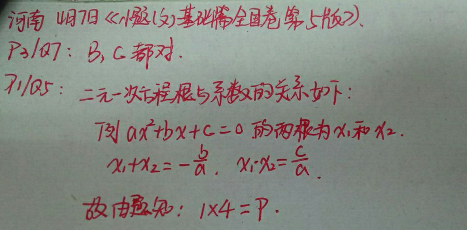 河南 4月7日《小题(文)基础篇全国卷第5版》.
P3/Q7: B, C 都对.
P1/Q5: 二元一次方程根与系数的关系如下:
ax²+bx+c=0 的两根为 x₁和 x₂.
x₁+x₂=-b/a, x₁·x₂=c/a.
故由题知: 1×4=P.